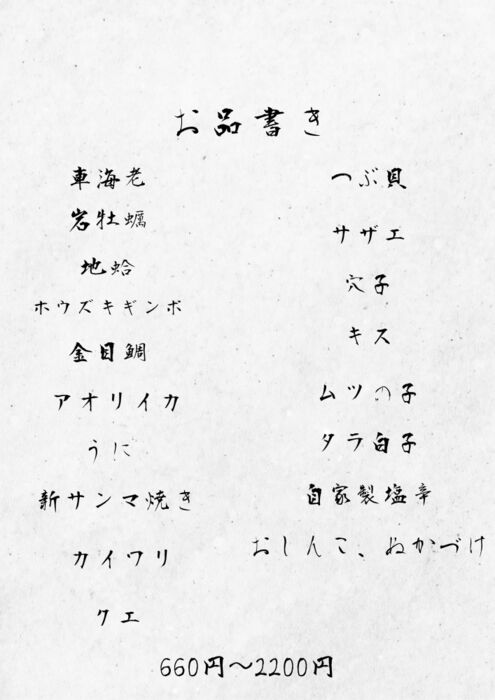 お品書き
車海老
岩牡蠣
地蛤
ホウズキギンポ
金目鯛
アオリイカ
うに
新サンマ焼き
カイワリ
クエ
つぶ貝
サザエ
穴子
キス
ムツの子
タラ白子
自家製塩辛
おしんこ、ぬかづけ
660円～2200円